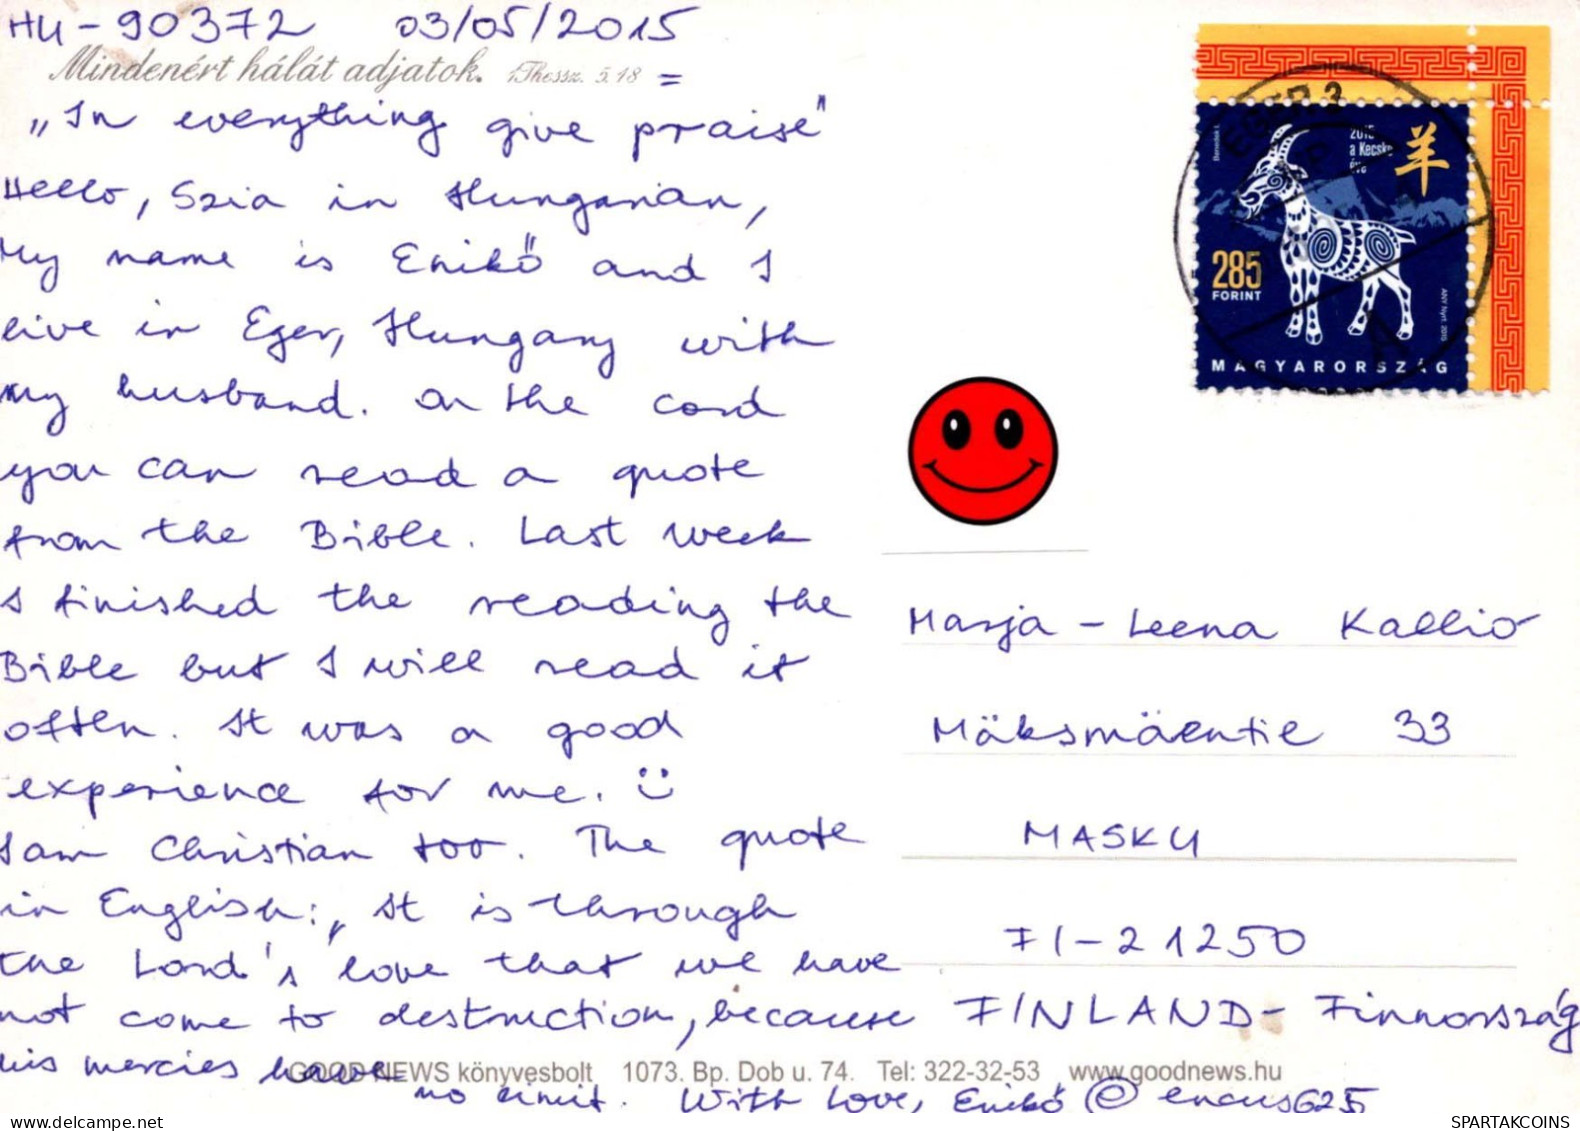 HU-90372 03/05/2015
Mindenért hálát adjatok. 1Thessz. 5.18 =
„In everything give praise"
Hello, Szia in Hungarian,
My name is Enikő and I
live in Eger, Hungary with
my husband. On the card
you can read a quote
from the Bible. Last week
I finished the reading the
Bible but I will read it
often. It was a good
experience for me. :)
I am Christian too. The quote
in English: „It is through
the Lord's love that we have
not come to destruction, because
his mercies have
no limit. With love, Enikő @encus625
GOOD NEWS könyvesbolt 1073. Bp. Dob u. 74. Tel: 322-32-53 www.goodnews.hu
EGER 3
2015
a Kecske
éve
羊
Benedek I.
285
FORINT
ANY Nyrt. 2015
MAGYARORSZÁG
Marja-Leena Kallio
Mäksmäentie 33
MASKU
FI-21250
FINLAND - Finnország
SPARTAKCOINS